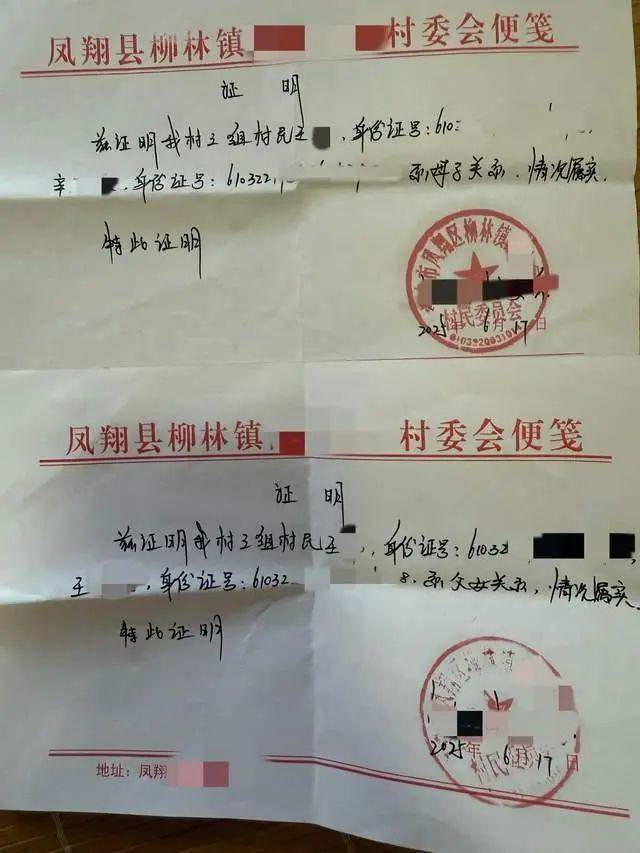 凤翔县柳林镇 村委会便笺
证 明
兹证明我村三组村民王 ，身份证号：610
辛 ，身份证号：610322 系母子关系，情况属实。
特此证明
市凤翔区柳林镇
村民委员会
2025 6月17日
凤翔县柳林镇 村委会便笺
证 明
兹证明我村三组村民王 ，身份证号：61032
王 ，身份证号：61032 8.系父女关系，情况属实
特此证明
村民
2025年6月17日
地址：凤翔